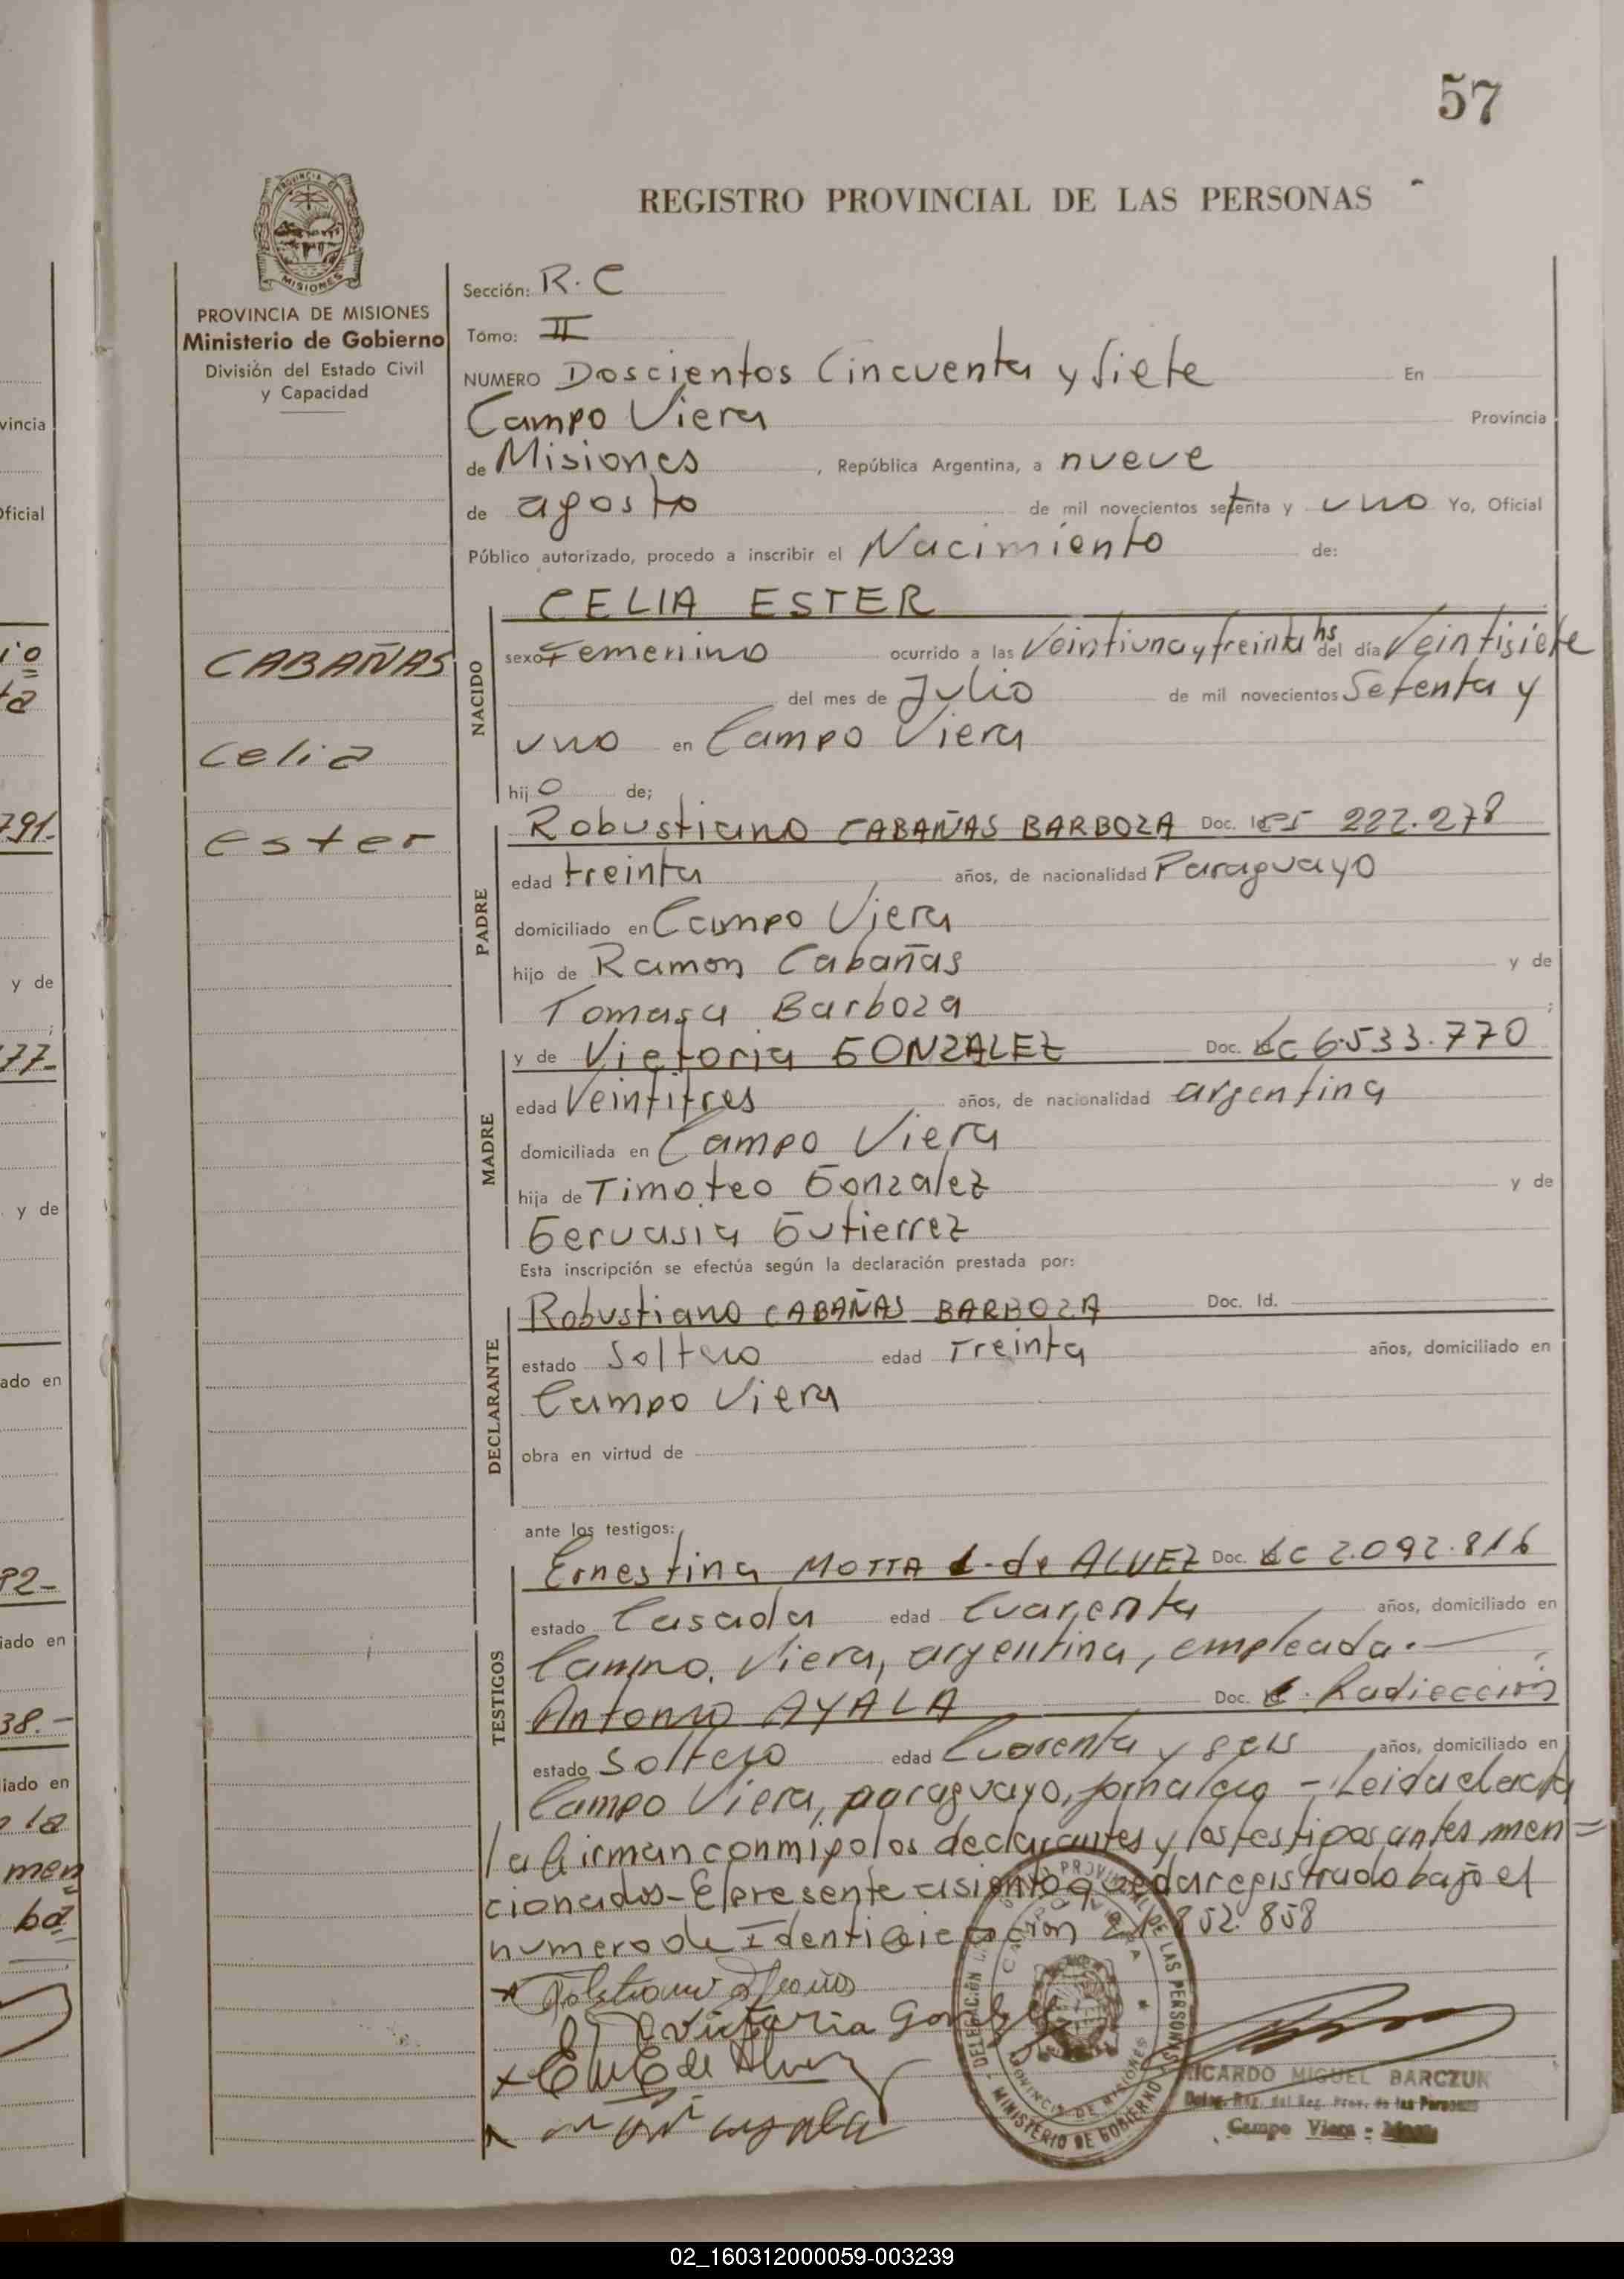 57
REGISTRO PROVINCIAL DE LAS PERSONAS
PROVINCIA DE MISIONES
Ministerio de Gobierno
División del Estado Civil
y Capacidad
Sección: R.C
Tomo: II
NUMERO Doscientos Cincuenta y Siete En
Campo Viera Provincia
de Misiones, República Argentina, a nueve
de agosto de mil novecientos setenta y uno Yo, Oficial
Público autorizado, procedo a inscribir el Nacimiento de:
CELIA ESTER
CABAÑAS
Celia
Ester
NACIDO
sexo Femenino ocurrido a las Veintiuna y treinta hs del día Veintisiete
del mes de Julio de mil novecientos Setenta y
uno en Campo Viera
hijo de;
PADRE
Robustiano CABAÑAS BARBOZA Doc. 222.278
edad treinta años, de nacionalidad Paraguayo
domiciliado en Campo Viera
hijo de Ramon Cabañas y de
Tomasa Barboza ;
MADRE
y de Victoria GONZALEZ Doc. LC 6.533.770
edad Veintitres años, de nacionalidad argentina
domiciliada en Campo Viera
hija de Timoteo Gonzalez y de
Gervasia Gutierrez
Esta inscripción se efectúa según la declaración prestada por:
DECLARANTE
Robustiano CABAÑAS BARBOZA Doc. Id.
estado Soltero edad Treinta años, domiciliado en
Campo Viera
obra en virtud de
ante los testigos:
TESTIGOS
Ernestina MOTTA de ALVEZ Doc. LC 2.092.816
estado Casada edad Cuarenta años, domiciliado en
Campo Viera, argentina, empleada.
Antonio AYALA Doc. Radicación
estado Soltero edad Cuarenta y seis años, domiciliado en
Campo Viera, paraguayo, jornalero - Leida el acta
la firman conmigo los declarantes y los testigos antes men=
cionados - El presente asiento queda registrado bajo el
numero de 852.858
Victoria Gonzalez
de Alvez
RICARDO MIGUEL BARCZUK
Deleg. Reg. del Reg. Prov. de las Personas
Campo Viera - Mnes.
02_160312000059-003239